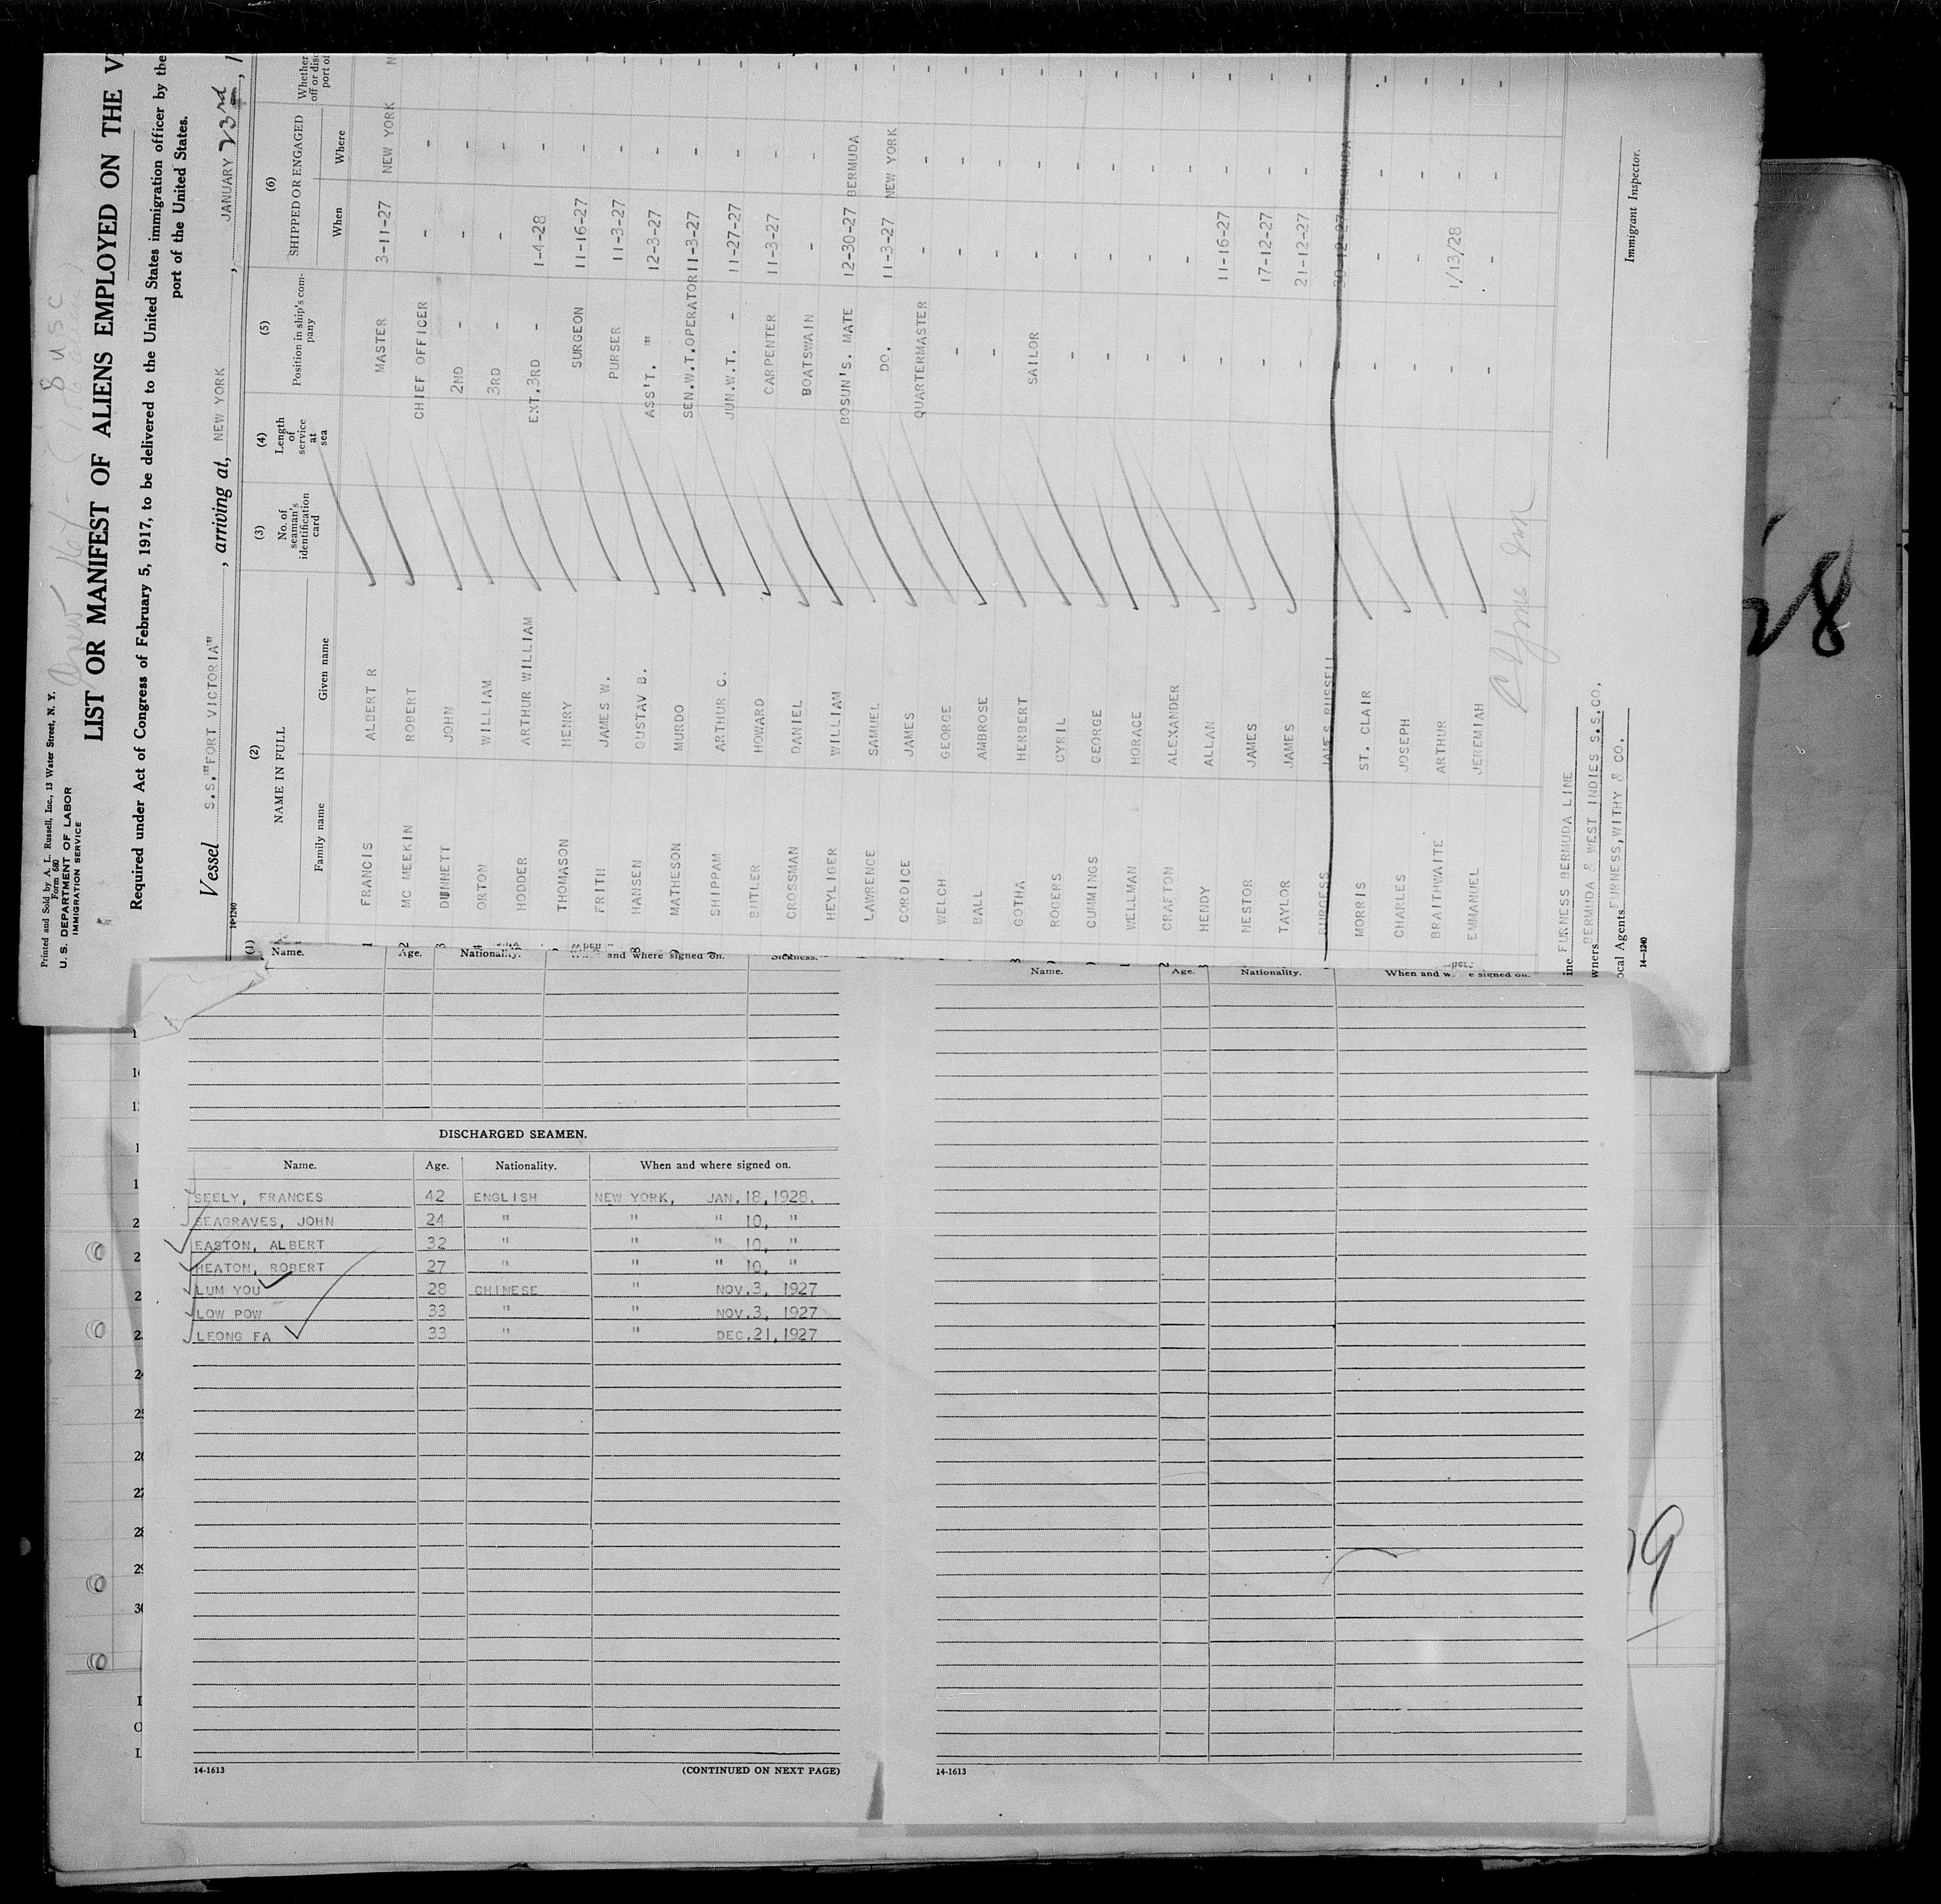 Printed and Sold by A. L. Russell, Inc., 13 Water Street, N. Y.
Form 680
U. S. DEPARTMENT OF LABOR
IMMIGRATION SERVICE
8 USC
LIST OR MANIFEST OF ALIENS EMPLOYED ON THE
Required under Act of Congress of February 5, 1917, to be delivered to the United States immigration officer by the
port of the United States.
Vessel S.S."FORT VICTORIA", arriving at, NEW YORK, JANUARY 23rd, 1
14-1240
(1) (2) (3) (4) (5) (6)
NAME IN FULL No. of seaman's identification card Length of service at sea Position in ship's company SHIPPED OR ENGAGED Whether
Family name Given name When Where
1 FRANCIS ALBERT R MASTER 3-11-27 NEW YORK
2 MC MEEKIN ROBERT CHIEF OFFICER - -
3 DUNNETT JOHN 2ND - - -
4 ORTON WILLIAM 3RD - - -
HODDER ARTHUR WILLIAM EXT.3RD - 1-4-28 -
THOMASON HENRY SURGEON 11-16-27 -
FRITH JAMES W. PURSER 11-3-27 -
8 HANSEN GUSTAV B. ASS'T. " 12-3-27 -
9 MATHESON MURDO SEN.W.T.OPERATOR 11-3-27 -
SHIPPAM ARTHUR C. JUN.W.T. - 11-27-27 -
BUTLER HOWARD CARPENTER 11-3-27 -
CROSSMAN DANIEL BOATSWAIN - -
HEYLIGER WILLIAM BOSUN'S. MATE 12-30-27 BERMUDA
LAWRENCE SAMUEL DO. 11-3-27 NEW YORK
CORDICE JAMES QUARTERMASTER - -
WELCH GEORGE - - -
BALL AMBROSE - - -
GOTHA HERBERT SAILOR - -
ROGERS CYRIL - - -
CUMMINGS GEORGE - - -
WELLMAN HORACE - - -
CRAFTON ALEXANDER - - -
HENDY ALLAN - 11-16-27 -
NESTOR JAMES - 17-12-27 -
TAYLOR JAMES - 21-12-27 -
BURGESS JAMES RUSSELL - 30-12-27 BERMUDA
MORRIS ST. CLAIR - - -
CHARLES JOSEPH - - -
BRAITHWAITE ARTHUR - 1/13/28 -
EMMANUEL JEREMIAH - - -
FURNESS BERMUDA LINE
wners BERMUDA & WEST INDIES S.S.CO.
ocal Agents FURNESS,WITHY & CO.
14-1240
Immigrant Inspector.
28
Name. Age. Nationality. When and where signed on. Sickness.
DISCHARGED SEAMEN.
Name. Age. Nationality. When and where signed on.
SEELY, FRANCES 42 ENGLISH NEW YORK, JAN.18,1928.
SEAGRAVES, JOHN 24 " " " 10, "
EASTON, ALBERT 32 " " " 10, "
HEATON, ROBERT 27 " " " 10, "
LUM YOU 28 CHINESE " NOV.3, 1927
LOW POW 33 " " NOV.3, 1927
LEONG FA 33 " " DEC.21,1927
14-1613 (CONTINUED ON NEXT PAGE)
Name. Age. Nationality. When and where signed on.
14-1613